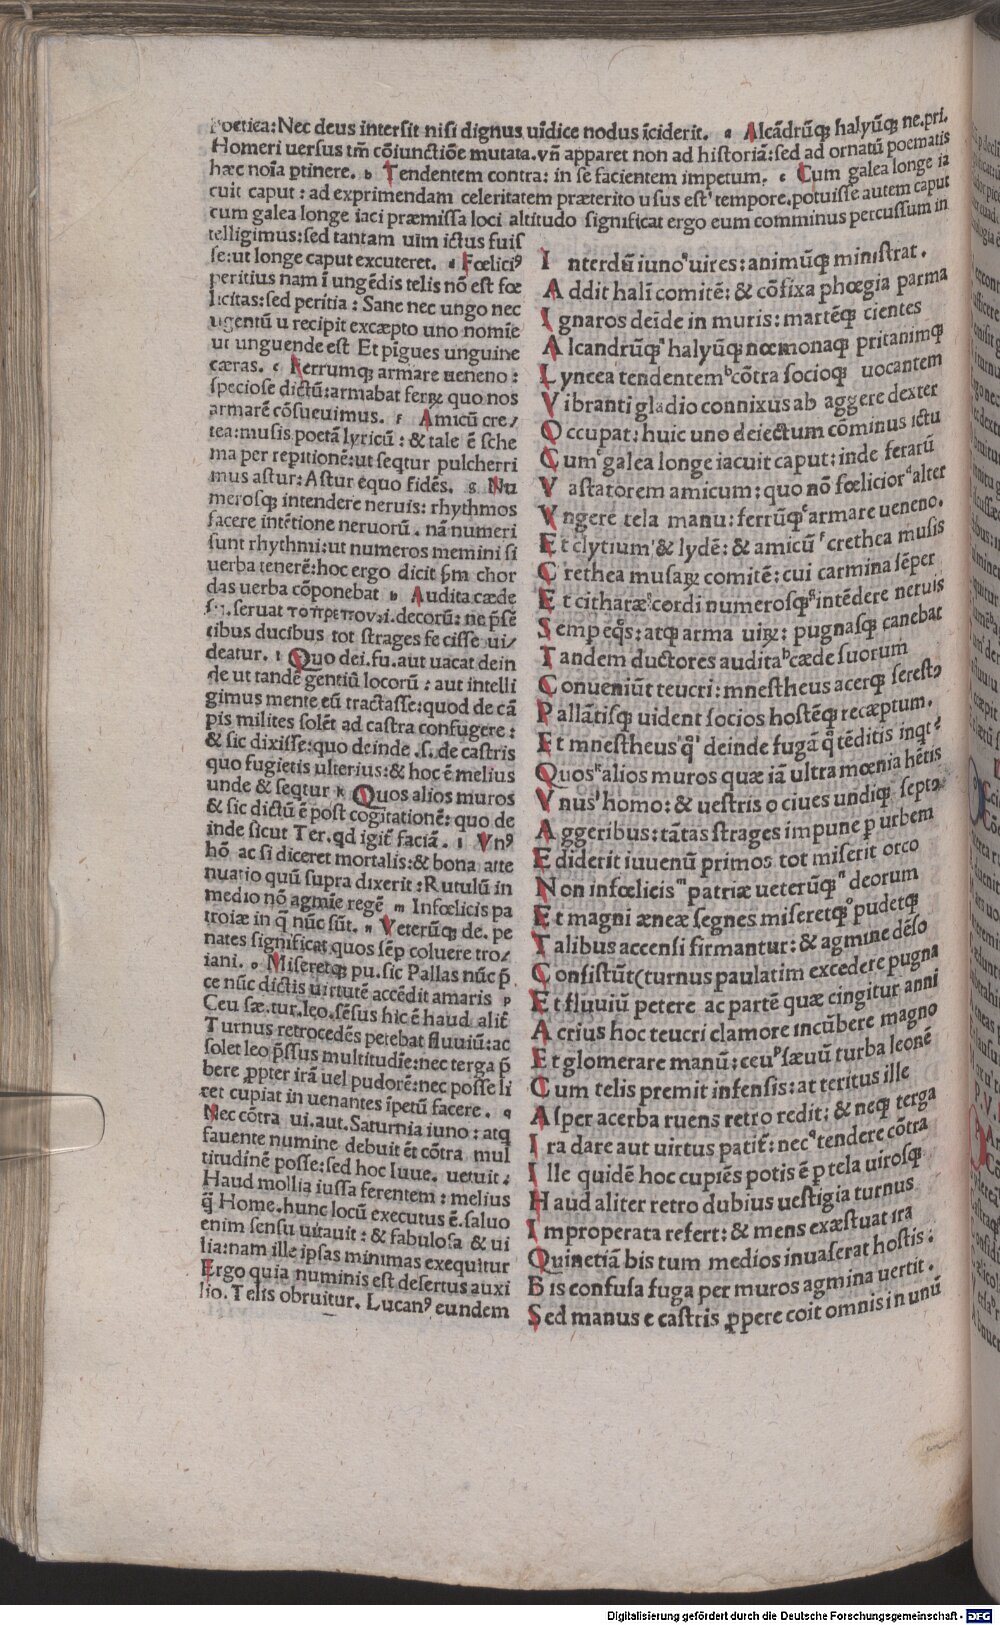 Poetica: Nec deus intersit nisi dignus uĩdice nodus ĩciderit. a Alcãdrũq; halyũq; ne.pri.
Homeri uersus tm̃ cõiunctiõe mutata. vñ apparet non ad historiã: sed ad ornatũ poematis
hæc noĩa ptinere. b Tendentem contra: in se facientem impetum. c Cum galea longe ia
cuit caput: ad exprimendam celeritatem præterito usus est' tempore. potuisse autem caput
cum galea longe iaci præmissa loci altitudo significat ergo eum comminus percussum in
telligimus: sed tantam uim ictus fuis
se: ut longe caput excuteret. d Fœliciꝰ
peritius nam ĩ ungẽdis telis nõ est fœ
licitas: sed peritia: Sane nec ungo nec
ugentũ u recipit excæpto uno nomĩe
ut unguende est Et pĩgues unguine
cæras. e Ferrumq; armare ueneno:
speciose dictũ: armabat ferꝝ quo nos
armarẽ cõsueuimus. f Amicũ cre/
tea: musis poetã lyricũ: & tale ẽ sche
ma per repitionẽ: ut seqtur pulcherri
mus astur: Astur equo fidẽs. g Nu
merosq; intendere neruis: rhythmos
facere intẽtione neruorũ. nã numeri
sunt rhythmi: ut numeros memini si
uerba tenerẽ: hoc ergo dicit ꝑm chor
das uerba cõponebat h Audita cæde
suo. seruat τοπρεπον.i. decorũ: ne p̃sẽ
tibus ducibus tot strages fecisse ui/
deatur. i Quo dei. fu. aut uacat dein
de ut tandẽ gentiũ locorũ: aut intelli
gimus mente eũ tractasse: quod de cã
pis milites solẽt ad castra confugere:
& sic dixisse: quo deinde .s. de castris
quo fugietis ulterius: & hoc ẽ melius
unde & seqtur k Quos alios muros
& sic dictũ ẽ post cogitationẽ: quo de
inde sicut Ter. qd igit̃ faciã. l Vnꝰ
hõ ac si diceret mortalis: & bona atte
nuatio quũ supra dixerit: Rutulũ in
medio nõ agmĩe regẽ m Infœlicis pa
troiæ in q̃ nũc sũt. n Veterũq; de. pe
nates significat quos sẽp coluere tro/
iani. o Miseretq; pu. sic Pallas nũc p̃
ce nũc dictis uirtutẽ accẽdit amaris p
Ceu sæ. tur. leo. sẽsus hic ẽ haud alit̃
Turnus retrocedẽs petebat fluuiũ: ac
solet leo p̃ssus multitudĩe: nec terga p̃
bere ꝓpter irã uel pudorẽ: nec posse li
cet cupiat in uenantes ĩpetũ facere. q
Nec cõtra ui. aut. Saturnia iuno: atq
fauente numine debuit ẽt cõtra mul
titudinẽ posse: sed hoc Iuue. uetuit:
Haud mollia iussa ferentem: melius
q̃ Home. hunc locũ executus ẽ. saluo
enim sensu uitauit: & fabulosa & ui
lia: nam ille ipsas minimas exequitur
Ergo quia numinis est desertus auxi
lio. Telis obruitur. Lucanꝰ eundem
Interdũ iunoꝰ uires: animũq; ministrat.
Addit halĩ comitẽ: & cõfixa phœgia parma
Ignaros deĩde in muris: martẽq; cientes
Alcandrũq;ᵃ halyũq; nœmonaq; pritanimq;
Lyncea tendentemᵇ cõtra socioq; uocantem
Vibranti gladio connixus ab aggere dexter
Occupat: huic uno deiectum cõminus ictu
Cumᶜ galea longe iacuit caput: inde ferarũ
Vastatorem amicum: quo nõ fœliciorᵈ alter
Vngere tela manu: ferrũq;ᵉ armare ueneno.
Et clytium & lydẽ: & amicũᶠ crethea musis
Crethea musaꝝ comitẽ: cui carmina sẽper
Et citharæ cordi numerosq;ᵍ intẽdere neruis
Semp eq̃s: atq; arma uiꝝ: pugnasq; canebat
Tandem ductores auditaʰ cæde suorum
Conueniũt teucri: mnestheus acerq; serestꝰ
Pallãtisq; uident socios hostẽq; recæptum.
Et mnestheus q̃ⁱ deinde fugã q̃ tẽditis inqt?
Quosᵏ alios muros quæ iã ultra mœnia hẽtis
Vnusˡ homo: & uestris o ciues undiq; septꝰ
Aggeribus: tãtas strages impune ꝑ urbem
Ediderit iuuenũ primos tot miserit orco
Non infœlicisᵐ patriæ ueterũq;ⁿ deorum
Et magni æneæ segnes miseretq;ᵒ pudetq;
Talibus accensi firmantur: & agmine dẽso
Consistũt (turnus paulatim excedere pugna
Et fluuiũ petere ac partẽ quæ cingitur anni
Acrius hoc teucri clamore incũbere magno
Et glomerare manũ: ceuᵖ sæuũ turba leonẽ
Cum telis premit infensis: at teritus ille
Asper acerba ruens retro redit: & neq; terga
Ira dare aut uirtus patit̃: necᑫ tendere cõtra
Ille quidẽ hoc cupiẽs potis ẽ ꝑ tela uirosq;
Haud aliter retro dubius uestigia turnus
Improperata refert: & mens exæstuat ira
Quinetiã bis tum medios inuaserat hostis:
Bis confusa fuga per muros agmina uertit.
Sed manus e castris ꝓpere coit omnis in unũ
Digitalisierung gefördert durch die Deutsche Forschungsgemeinschaft - DFG